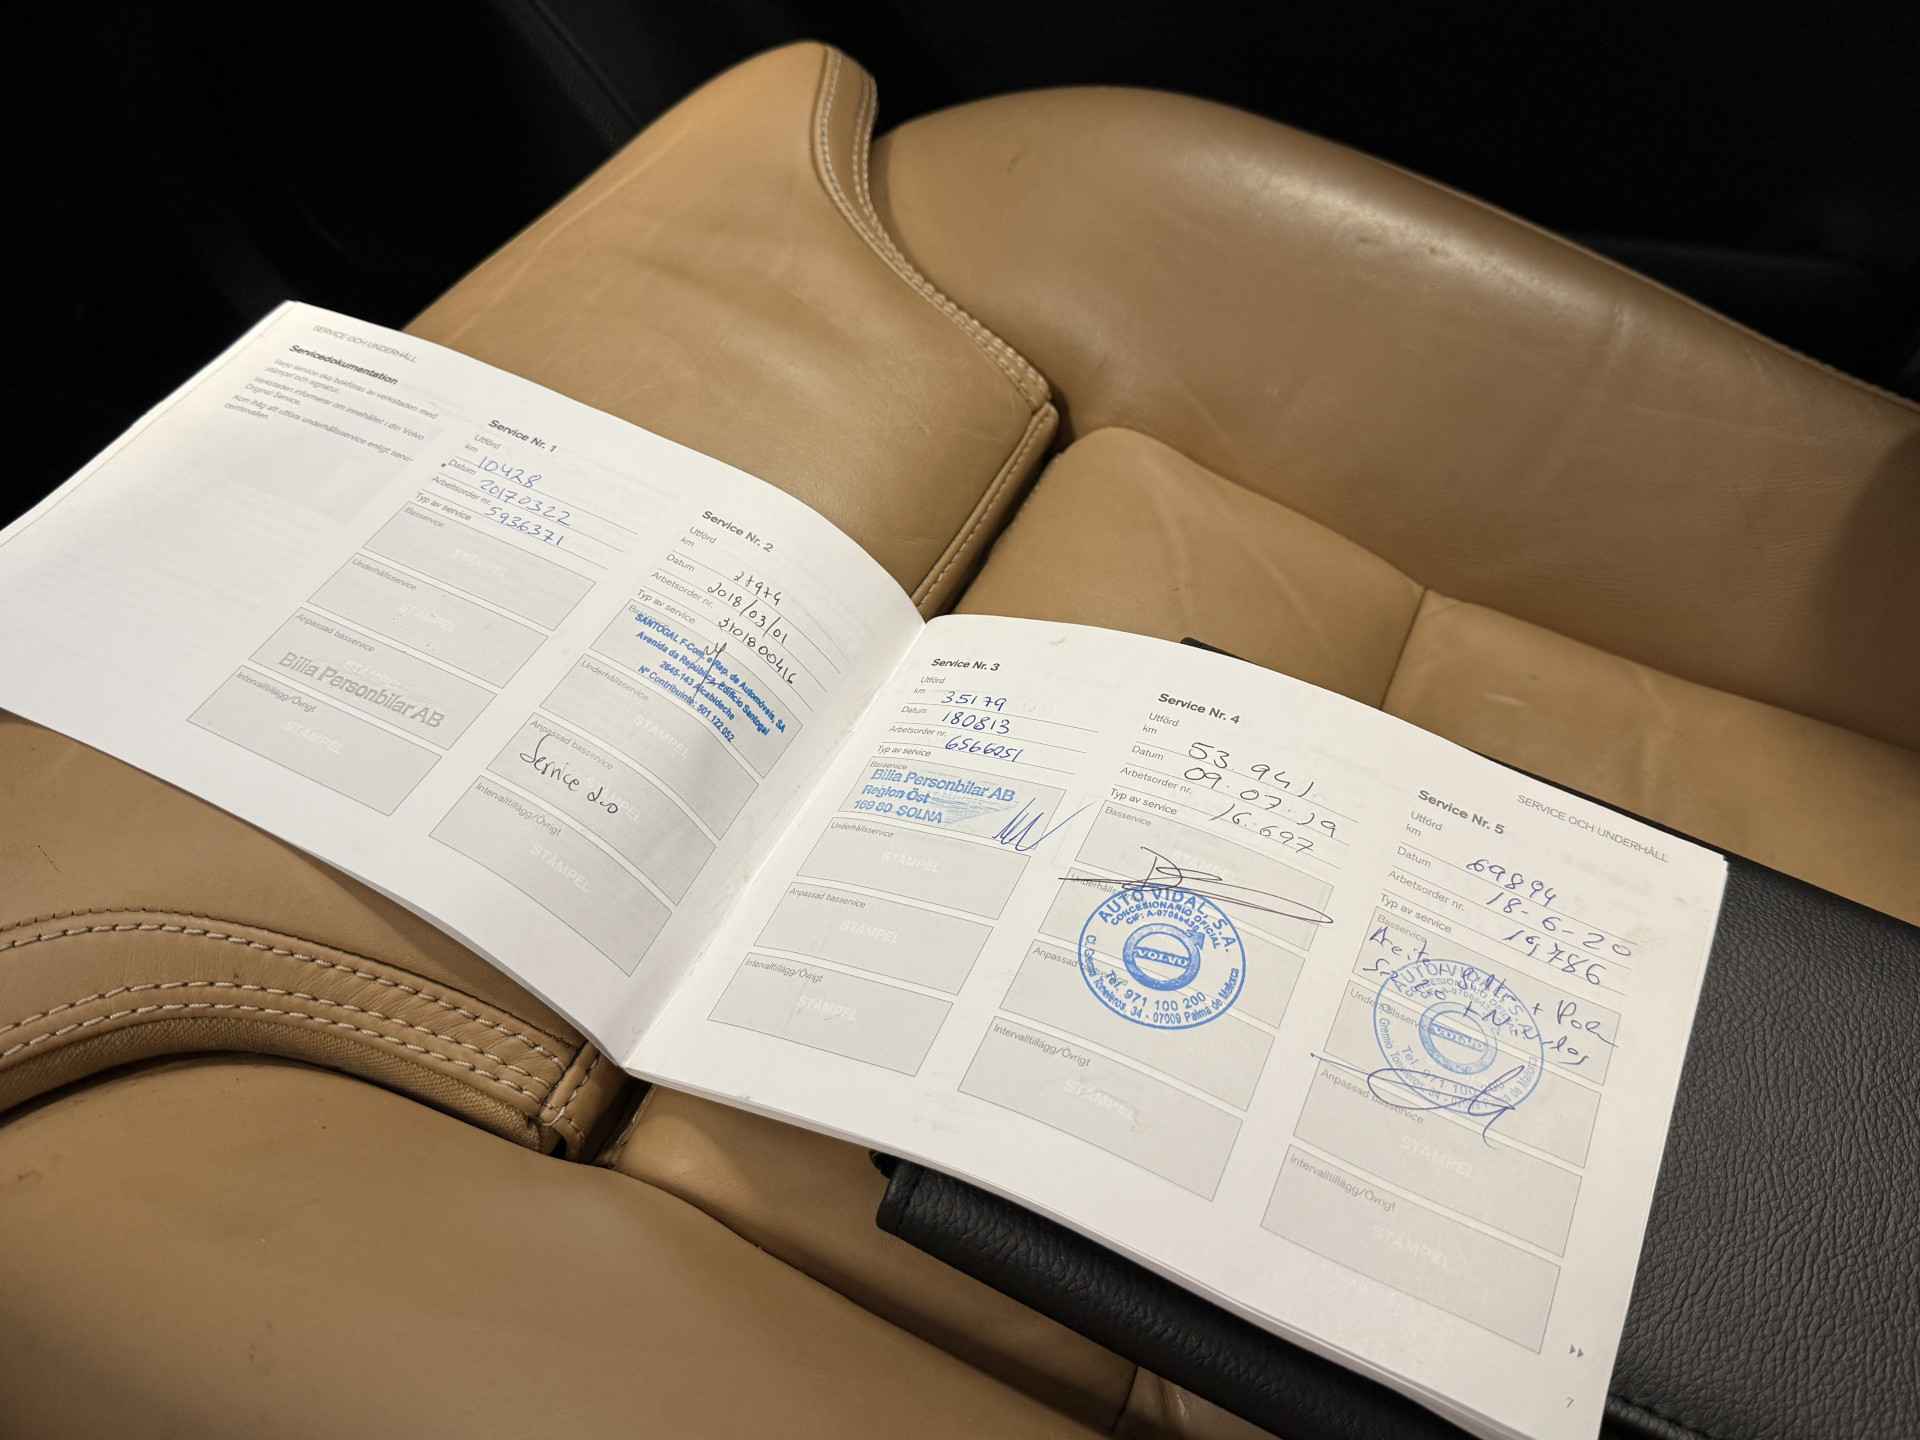 SERVICE OCH UNDERHÅLL
Servicedokumentation
Varje service ska bekräftas av verkstaden med
stämpel och signatur.
Verkstaden informerar om innehållet i din Volvo
Original Service.
Kom ihåg att utföra underhållsservice enligt
Service Nr. 1
Utförd
km 10428
Datum 20170322
Arbetsorder nr. 5936371
Typ av service
Basservice
STÄMPEL
Underhållsservice
STÄMPEL
Anpassad basservice
STÄMPEL
Bilia Personbilar AB
Intervalltillägg/Övrigt
STÄMPEL
Service Nr. 2
Utförd
km 27974
Datum 2018/03/01
Arbetsorder nr. 3101800416
Typ av service
SANTOGAL F-Com. e Rep. de Automóveis, SA
Avenida da República, Edifício Santogal
2645-143 Alcabideche
Nº Contribuinte: 501 122 052
Underhållsservice
STÄMPEL
Anpassad basservice
Service
Intervalltillägg/Övrigt
STÄMPEL
Service Nr. 3
Utförd
km 35179
Datum 180813
Arbetsorder nr. 6566251
Typ av service
Basservice
Bilia Personbilar AB
Region Öst
169 80 SOLNA
Underhållsservice
STÄMPEL
Anpassad basservice
STÄMPEL
Intervalltillägg/Övrigt
STÄMPEL
Service Nr. 4
Utförd
km 53.941
Datum 09.07.19
Arbetsorder nr. 16.697
Typ av service
Basservice
AUTO VIDAL, S.A.
CONCESIONARIO OFICIAL
VOLVO
Tel. 971 100 200
C. Gremio Toneleros, 34 - 07009 Palma de Mallorca
Intervalltillägg/Övrigt
STÄMPEL
SERVICE OCH UNDERHÅLL
Service Nr. 5
Utförd
km 69894
Datum 18-6-20
Arbetsorder nr. 19786
Typ av service
Basservice
Aceite
AUTO VIDAL
VOLVO
Anpassad basservice
STÄMPEL
Intervalltillägg/Övrigt
STÄMPEL
7